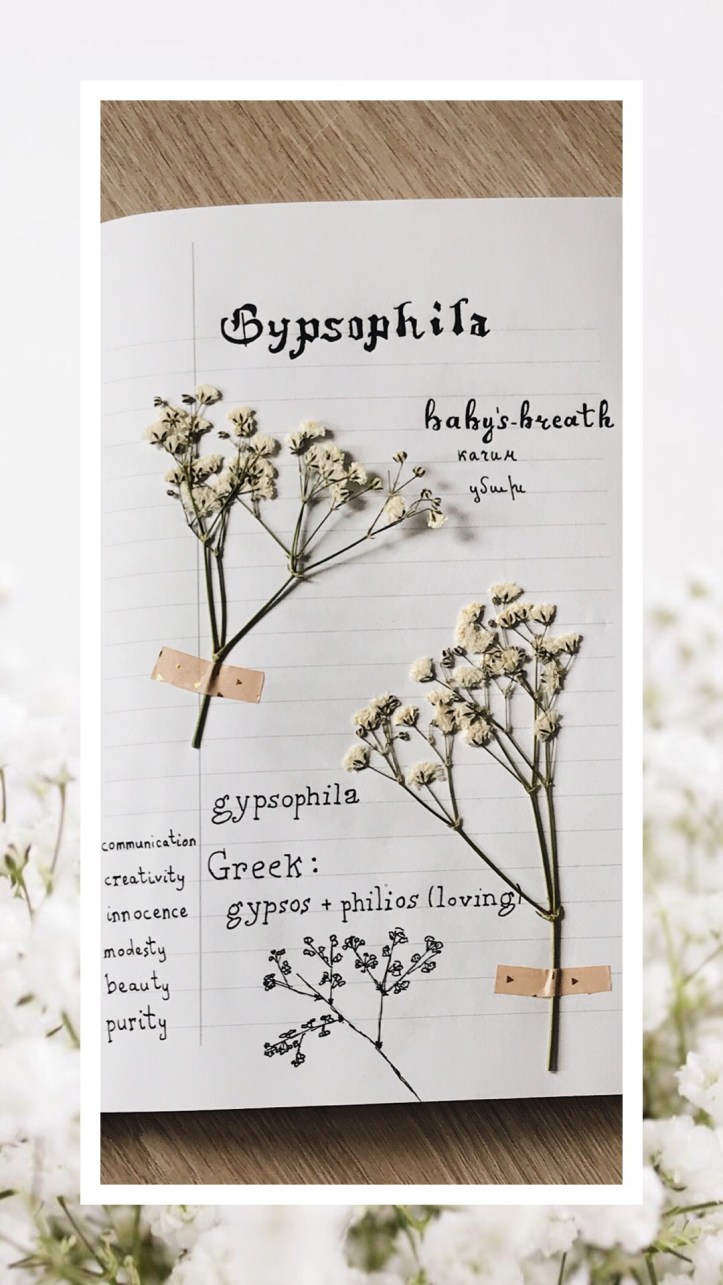 Gypsophila
baby's-breath
качим
gypsophila
Greek:
gypsos + philios (loving)
communication
creativity
innocence
modesty
beauty
purity